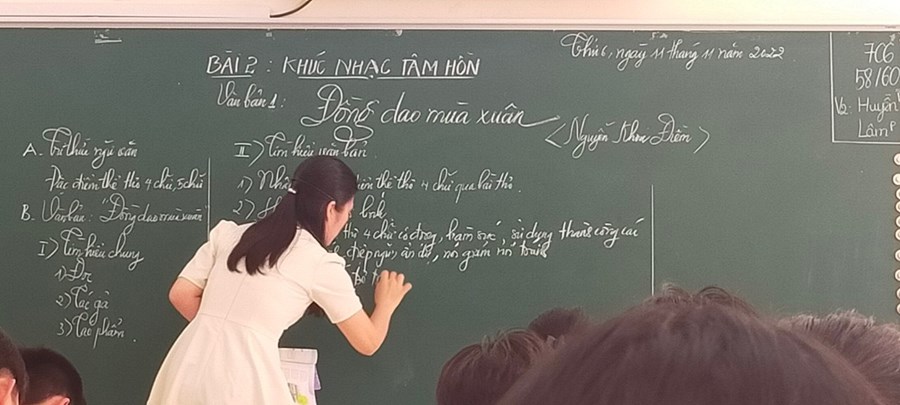 Thứ 6, ngày 11 tháng 11 năm 2022
7C6
58/60
V2: Huyền
Lâm P
BÀI 2: KHÚC NHẠC TÂM HỒN
Văn bản 1: Đồng dao mùa xuân
< Nguyễn Khoa Điềm >
A. Tri thức ngữ văn
Đặc điểm thể thơ 4 chữ, 5 chữ
B. Văn bản: "Đồng dao mùa xuân"
I) Tìm hiểu chung
1) Đọc
2) Tác giả
3) Tác phẩm
II) Tìm hiểu văn bản
1) điểm thể thơ 4 chữ qua bài thơ.
2) lính
thơ 4 chữ cô đọng, hàm súc, sử dụng thành công các
điệp ngữ, ẩn dụ, nói giảm nói tránh